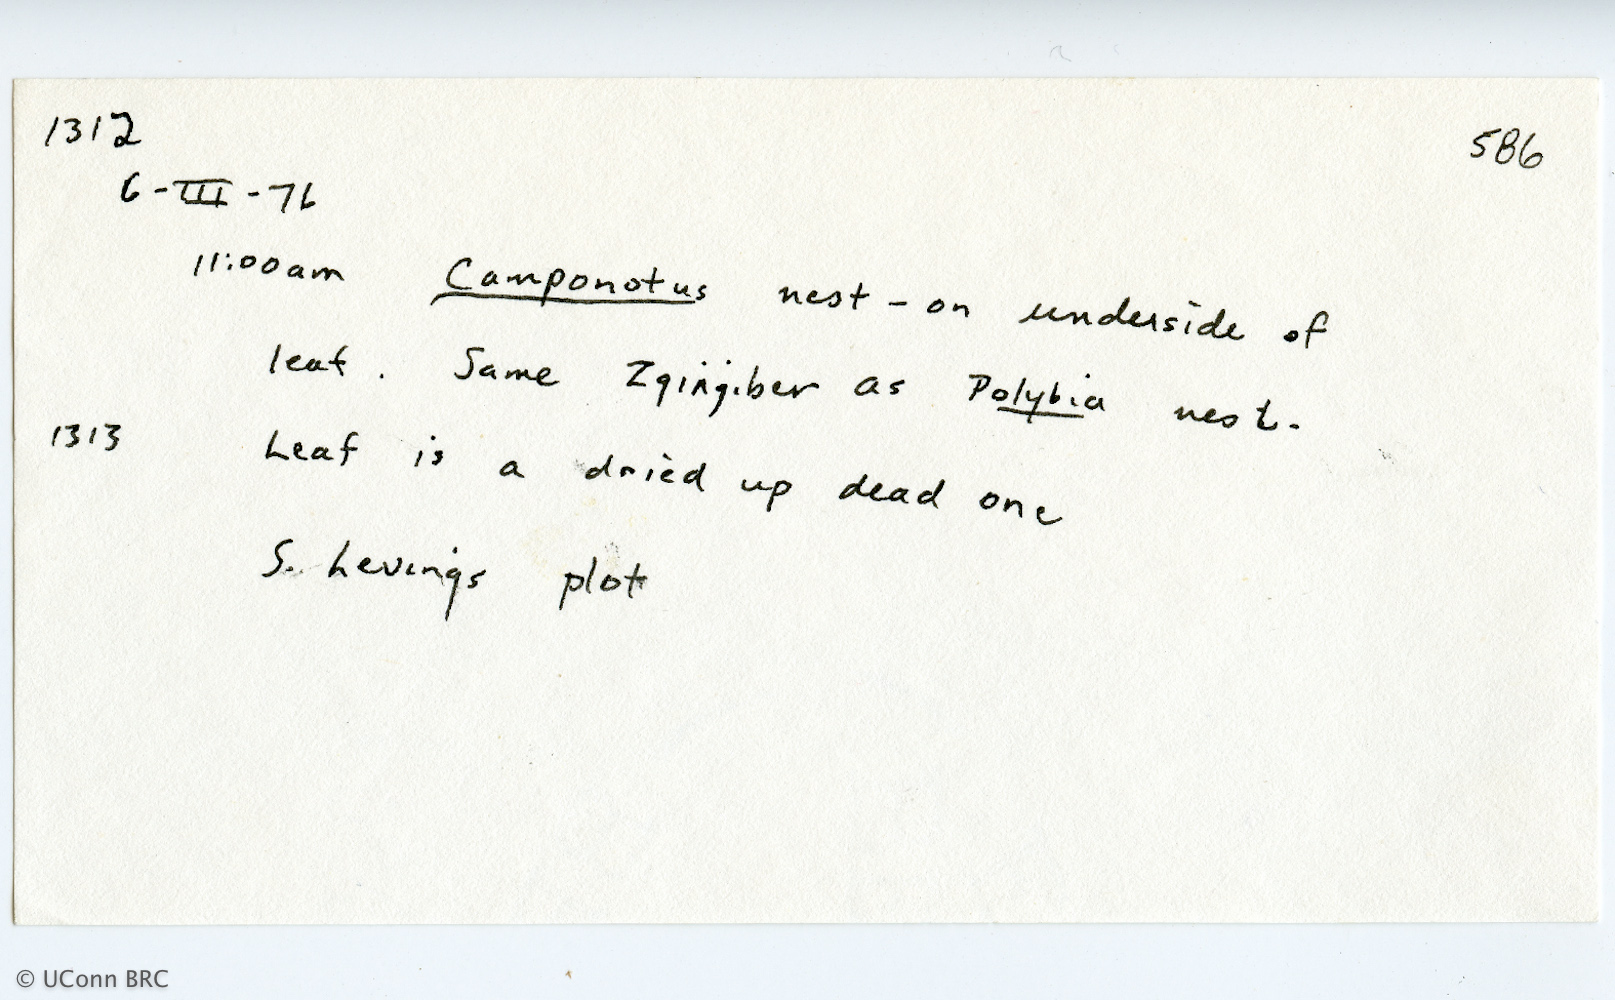 1312
586
6-III-76
11:00am Camponotus nest - on underside of
leaf. Same Zqingiber as Polybia nest.
1313 Leaf is a dried up dead one
S. Levings plot
© UConn BRC